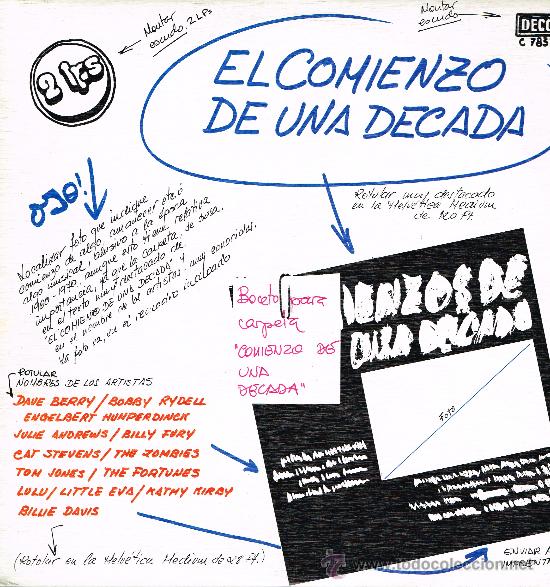 Montar
escudo 2 LPs
Montar
escudo
DECC
C 783
2 lps
EL COMIENZO
DE UNA DECADA
OJO!
Rotular muy destacado
en la Helvetica Medium
de
Localizar foto que indique
comienzo de algo, amanecer otoño
algo musical, alusivo a la época
1960-1970, aunque esto tiene relativa
importancia, ya que la carpeta, se basa
en el texto muy destacado de
"EL COMIENZO DE UNA DECADA" y
en el nombre de los artistas, muy
la foto va, en el recuadro indicado
Boceto para
carpeta
"COMIENZO DE
UNA
DECADA"
IENZOS DE
UNA DECADA
Foto
ROTULAR
NOMBRES DE LOS ARTISTAS
DAVE BERRY / BOBBY RYDELL
ENGELBERT HUMPERDINCK
JULIE ANDREWS / BILLY FURY
CAT STEVENS / THE ZOMBIES
TOM JONES / THE FORTUNES
LULU / LITTLE EVA / KATHY KIRBY
BILLIE DAVIS
(Rotular en la Helvética Medium de 28 Ff.)
ENVIAR A
IMPRENTA
todocoleccion.net